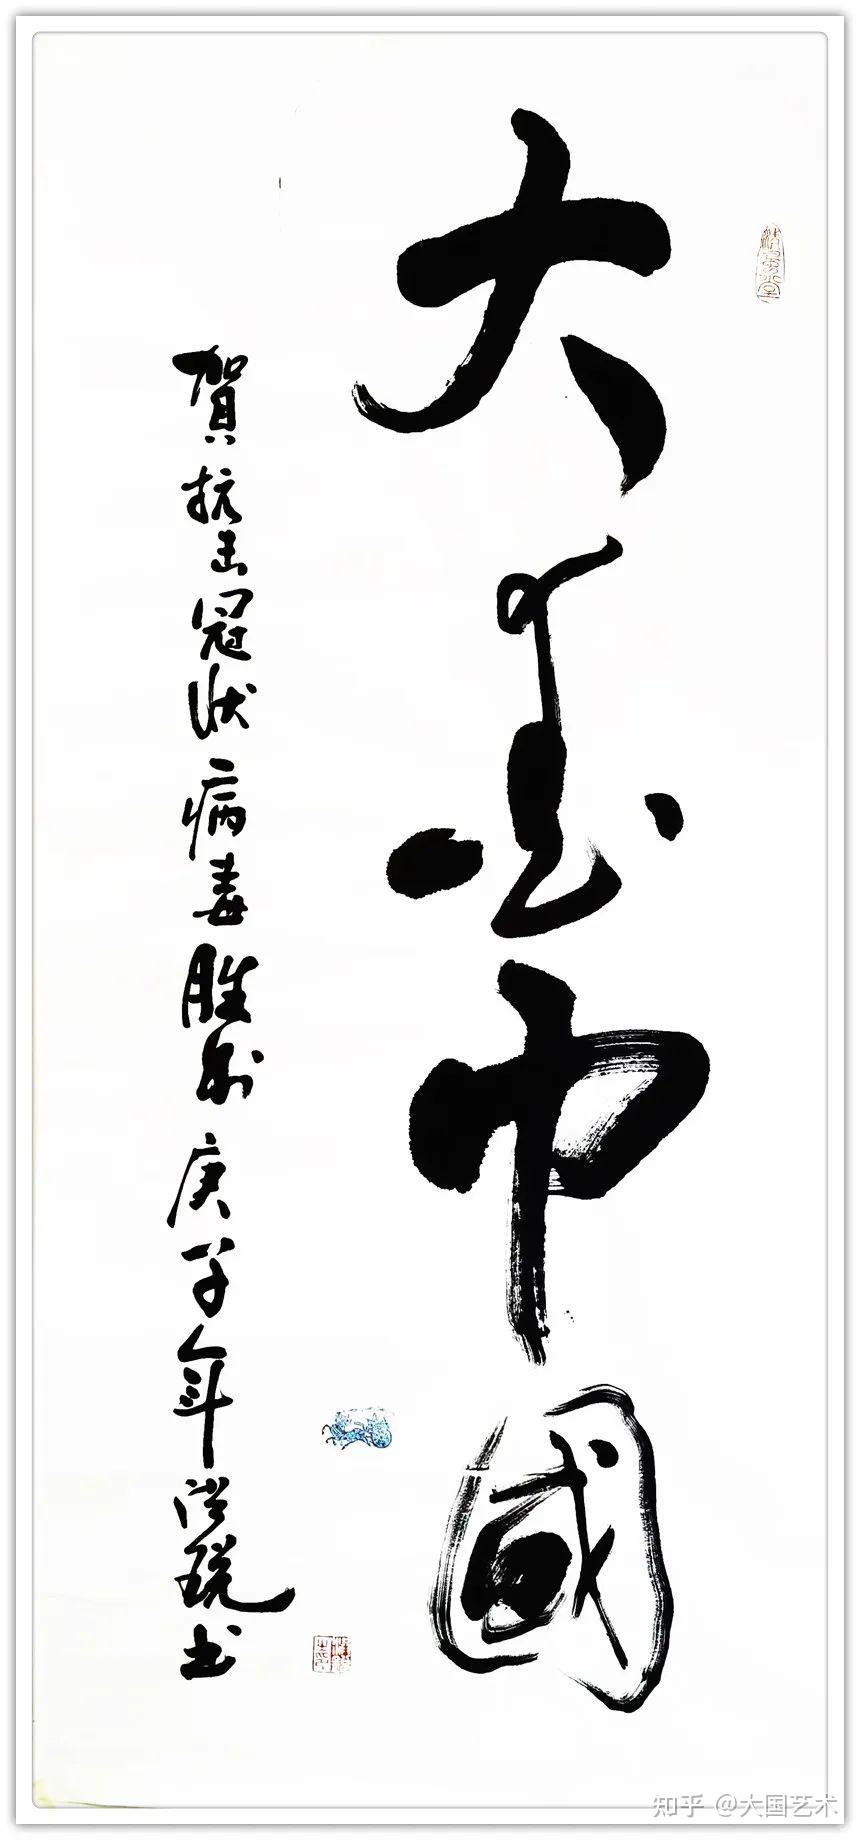 大愛中國
賀抗击冠状病毒胜利庚子年书
知乎 @大国艺术